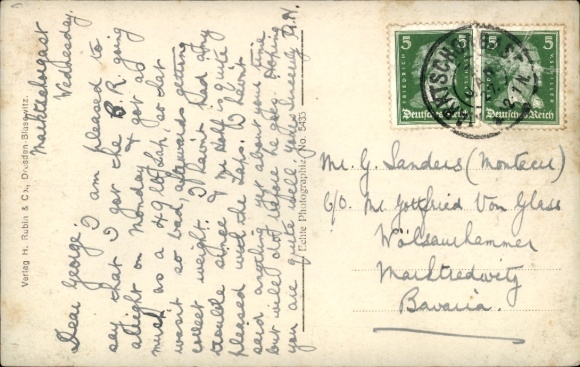 Marktleugast
Wednesday.
Dear George. I am pleased to
say that I got the B. R. going
alright on Monday & got as
much as a 49 lb
so that
wasn't so bad, afterwards getting
correct weight. I haven't had any
trouble since & Mr
is quite
pleased with the
I haven't
said anything yet about your time
but will
before he goes. Hoping
you are quite well. Yours Sincerely
Verlag H. Rubin & Co., Dresden-Blasewitz.
Echte Photographie No. 5435
5 5
Deutsches Reich
5 5
Deutsches Reich
Mr. G. Sanders (Monteur)
C/o Mr Gottfried Von Glass
Wölsauerhammer
Marktredwitz
Bavaria.